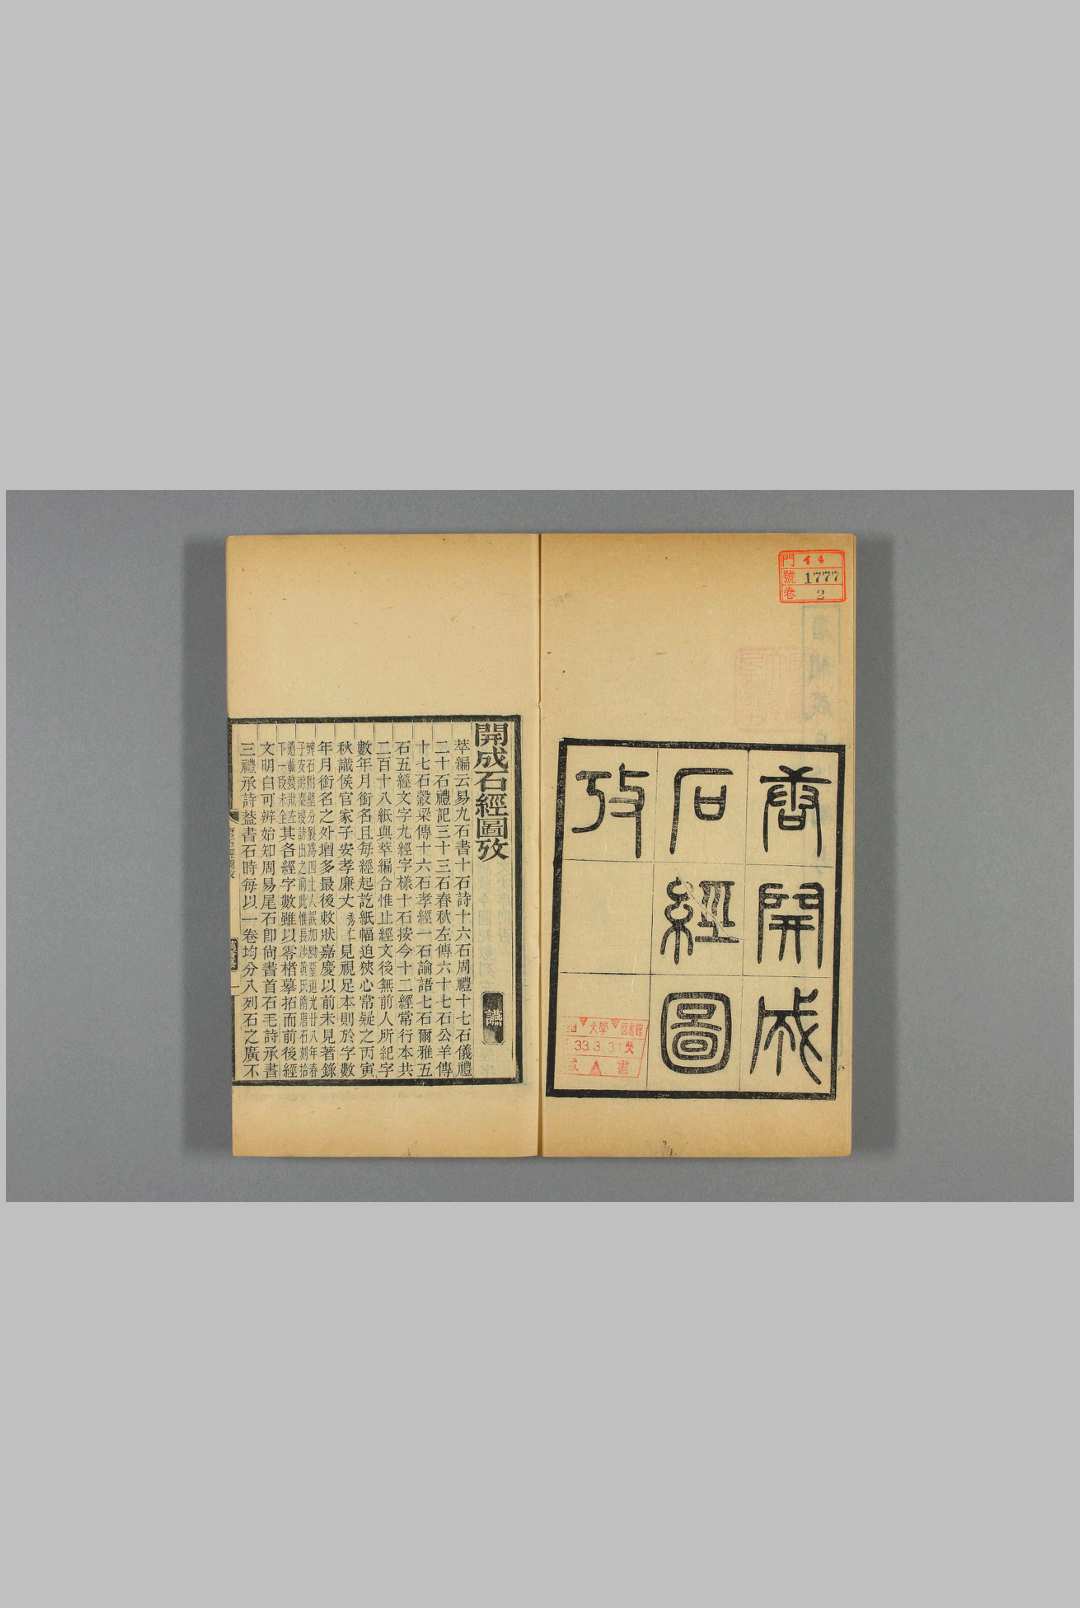 門 イ4
號 1777
卷 2
唐開成
石經圖
攷
大學
33.3.31
開成石經圖攷
萃編云易九石書十石詩十六石周禮十七石儀禮
二十石禮記三十三石春秋左傳六十七石公羊傳
十七石穀梁傳十六石孝經一石論語七石爾雅五
石五經文字九經字樣十石按今十二經常行本共
二百十八紙與萃編合惟止經文後無前人所紀字
數年月銜名且每經起訖紙幅迫狹心常疑之丙寅
秋識侯官家子安孝廉丈秀仁見視足本則於字數
年月銜名之外增多最後敕狀嘉慶以前未見著錄
其各經字數雖以零楮摹拓而前後經
文明白可辨始知周易尾石卽尙書首石毛詩承書
三禮承詩葢書石時每以一卷均分八列石之廣不